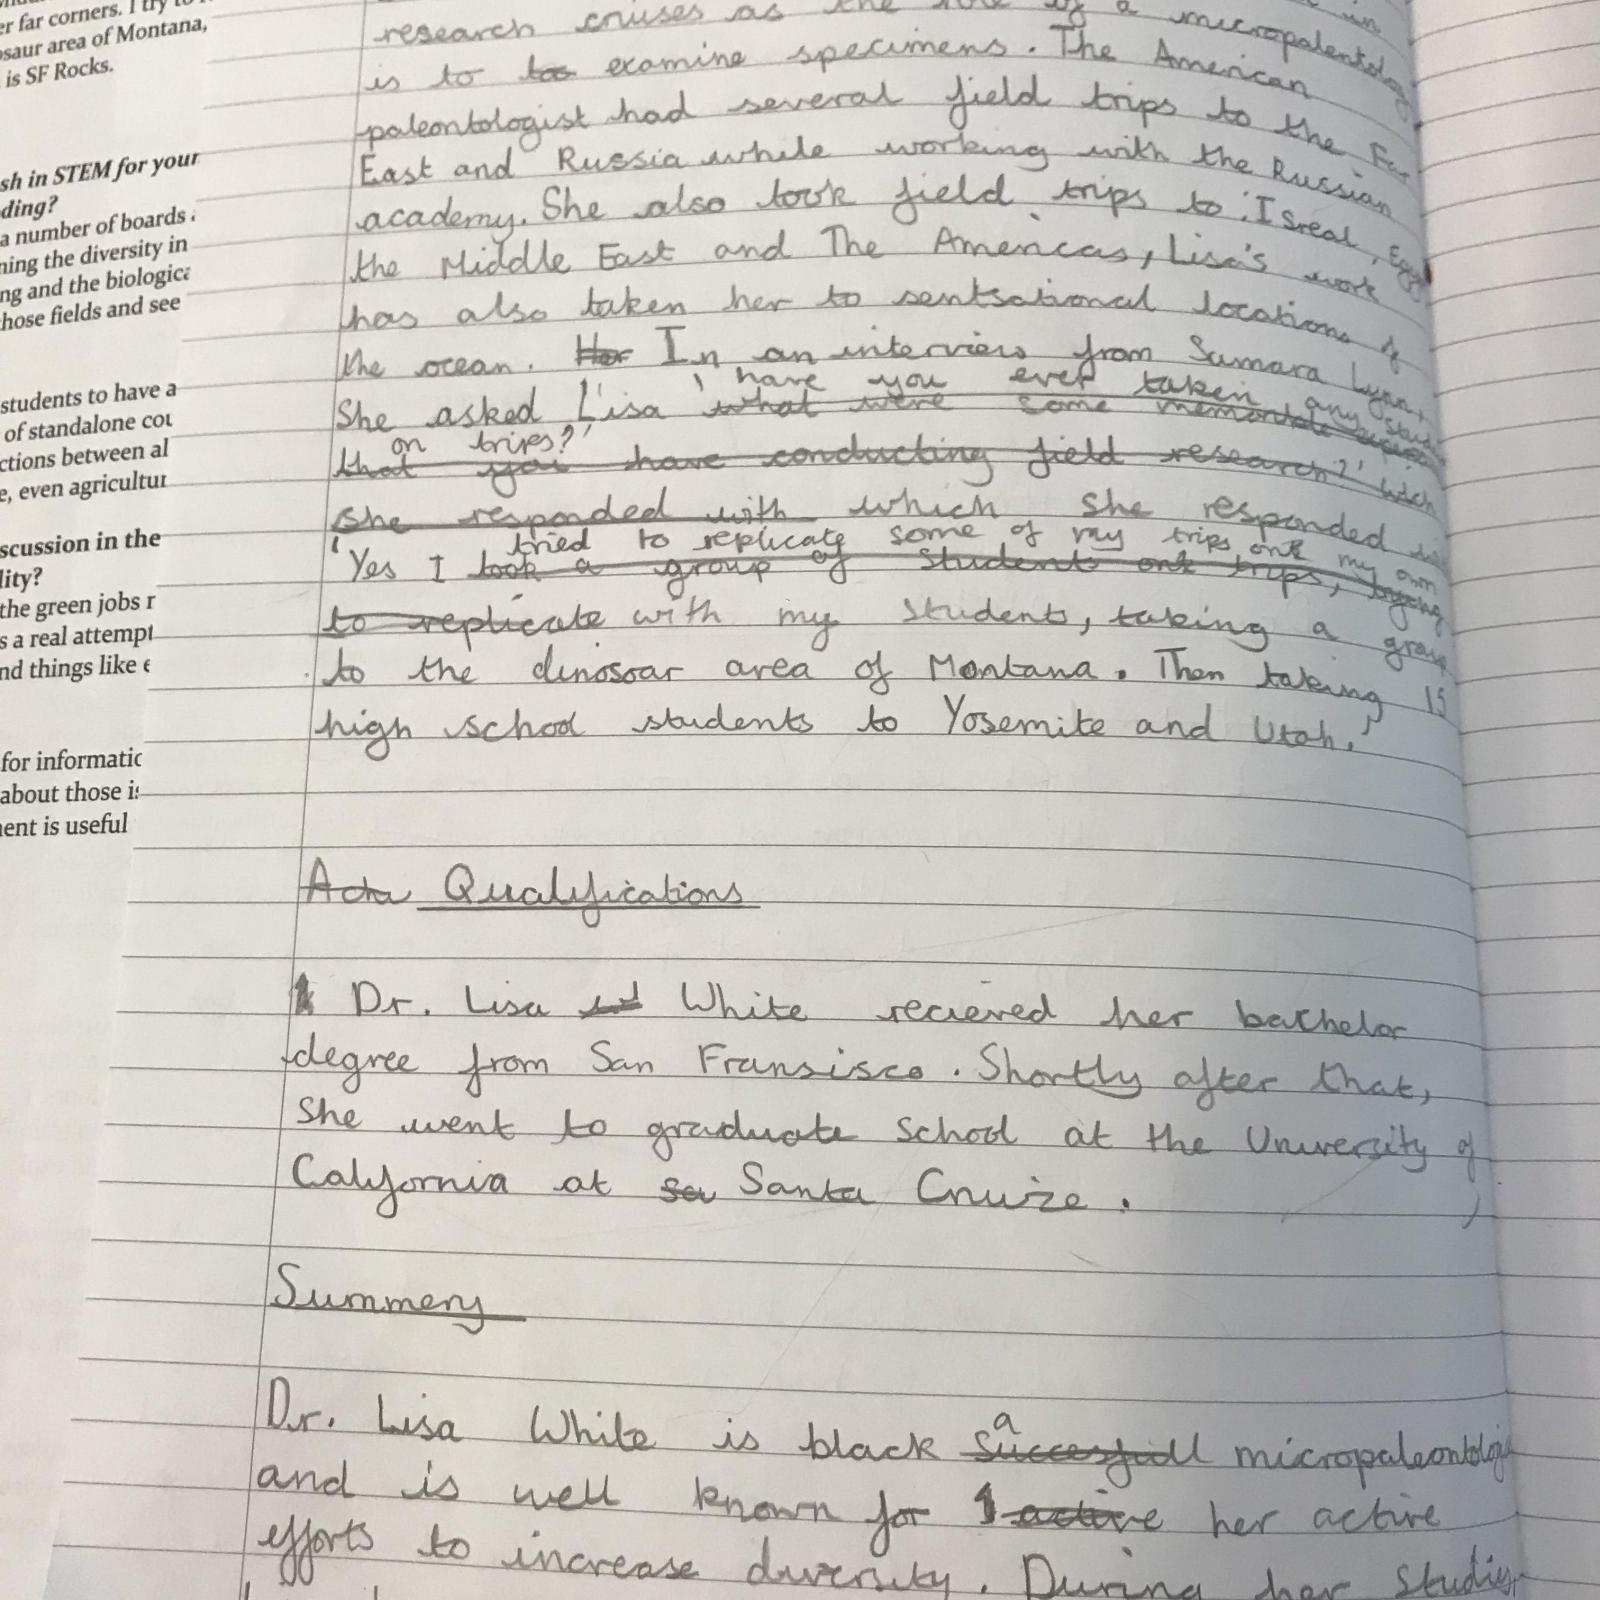 er far corners. I try to
osaur area of Montana,
is SF Rocks.
sh in STEM for your
ding?
a number of boards
ning the diversity in
ng and the biologica
hose fields and see
students to have a
of standalone cou
ctions between al
e, even agricultur
scussion in the
lity?
the green jobs r
s a real attempt
nd things like e
for informatic
about those is
nent is useful
research cruises as the role of a micropalentolog
is to too examine specimens. The American
paleontologist had several field trips to the Far
East and Russia while working with the Russian
academy. She also took field trips to Isreal, Egy
the Middle East and The Americas, Lisa's work
has also taken her to sentsational locations of
the ocean. Her In an interview from Samara Lynn,
'have you ever taken any stud
She asked Lisa what were some memorable
on trips?'
that you have conducting field research?' wich
she responded with which she responded
tried to replicate some of my trips, on my own
'Yes I took a group of students on trips, trying
to replicate with my students, taking a group
to the dinosoar area of Montana. Then taking 15
high school students to Yosemite and Utah.'
Aca Qualifications
Dr. Lisa White recieved her bachelor
degree from San Fransisco. Shortly after that,
She went to graduate school at the University of
California at Sa Santa Cruize.
Summery
a
Dr. Lisa White is black successfull micropaleontologi
and is well known for active her active
efforts to increase diversity. During her studies,